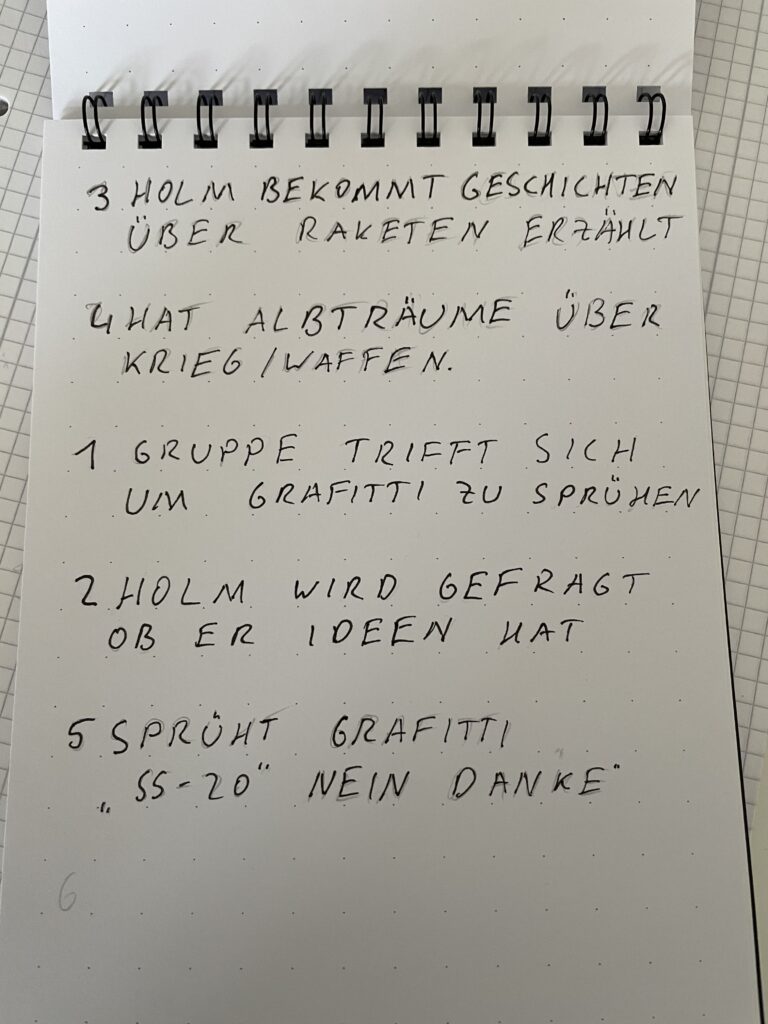 3 HOLM BEKOMMT GESCHICHTEN
ÜBER RAKETEN ERZÄHLT
4 HAT ALBTRÄUME ÜBER
KRIEG/WAFFEN.
1 GRUPPE TRIFFT SICH
UM GRAFITTI ZU SPRÜHEN
2 HOLM WIRD GEFRAGT
OB ER IDEEN HAT
5 SPRÜHT GRAFITTI
„SS-20" NEIN DANKE"
6